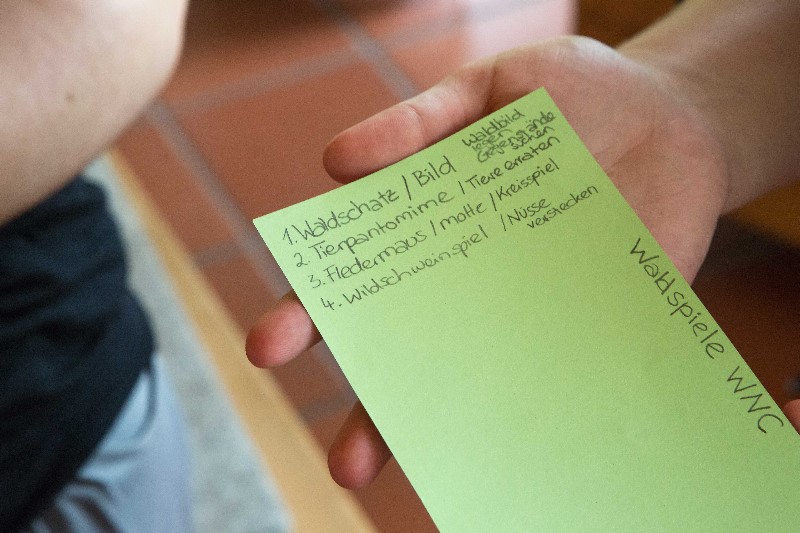 1. Waldschatz / Bild Waldbild
legen
Gegenstände
suchen
2. Tierpantomime / Tiere erraten
3. Fledermaus / motte / Kreisspiel
4. Wildschweinspiel / Nüsse
verstecken
Waldspiele WNC